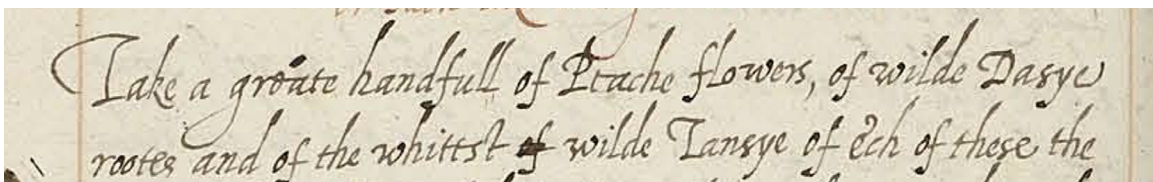 Take a greate handfull of Peache flowers, of wilde Dasye
rootes and of the whittst of wilde Tansye of ech of these the